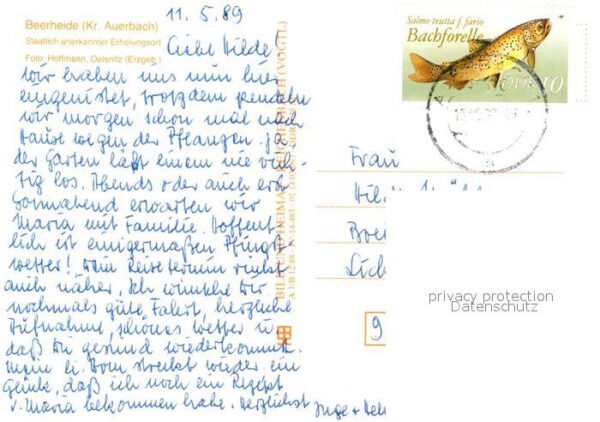 11.5.89
Beerheide (Kr. Auerbach)
Staatlich anerkannter Erholungsort
Foto: Hoffmann, Oelsnitz (Erzgeb.)
Liebe Hilde!
Wir haben uns nun hier
eingenistet, trotzdem pendeln
wir morgen schon mal nach
Hause wegen der Pflanzen. Ja
der Garten läßt einem nie rich-
tig los. Abends oder auch erst
Sonnabend erwarten wir
Maria mit Familie. Hoffent-
lich ist einigermaßen Pfingst-
wetter! Dein Reisetermin rückt
auch näher, Ich wünsche Dir
nochmals gute Fahrt, herzliche
Aufnahme, schönes Wetter u.
daß Du gesund wiederkommst.
Mein li. streikt wieder ein
Glück, daß ich noch ein Rezept
v. Maria bekommen habe. Herzlichst Inge +
BILD UND HEIMAT REICHENBACH (VOGTL)
Salmo trutta f. fario
Bachforelle
DDR 10
Frau
9
privacy protection
Datenschutz